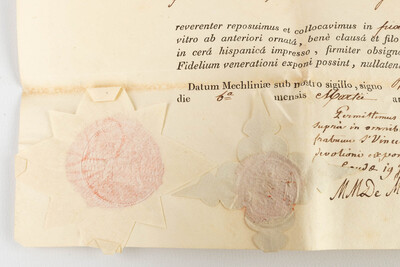 reverenter reposuimus et collocavimus in
vitro ab anteriori ornatâ, benè clausâ et filo
in cerâ hispanicâ impresso, firmiter obsign
Fidelium venerationi exponi possint, nullaten
Datum Mechliniæ sub nostro sigillo, signo
die 6ª mensis Martii an
Permittimus
supra in omnib
devotioni expon
M M De M